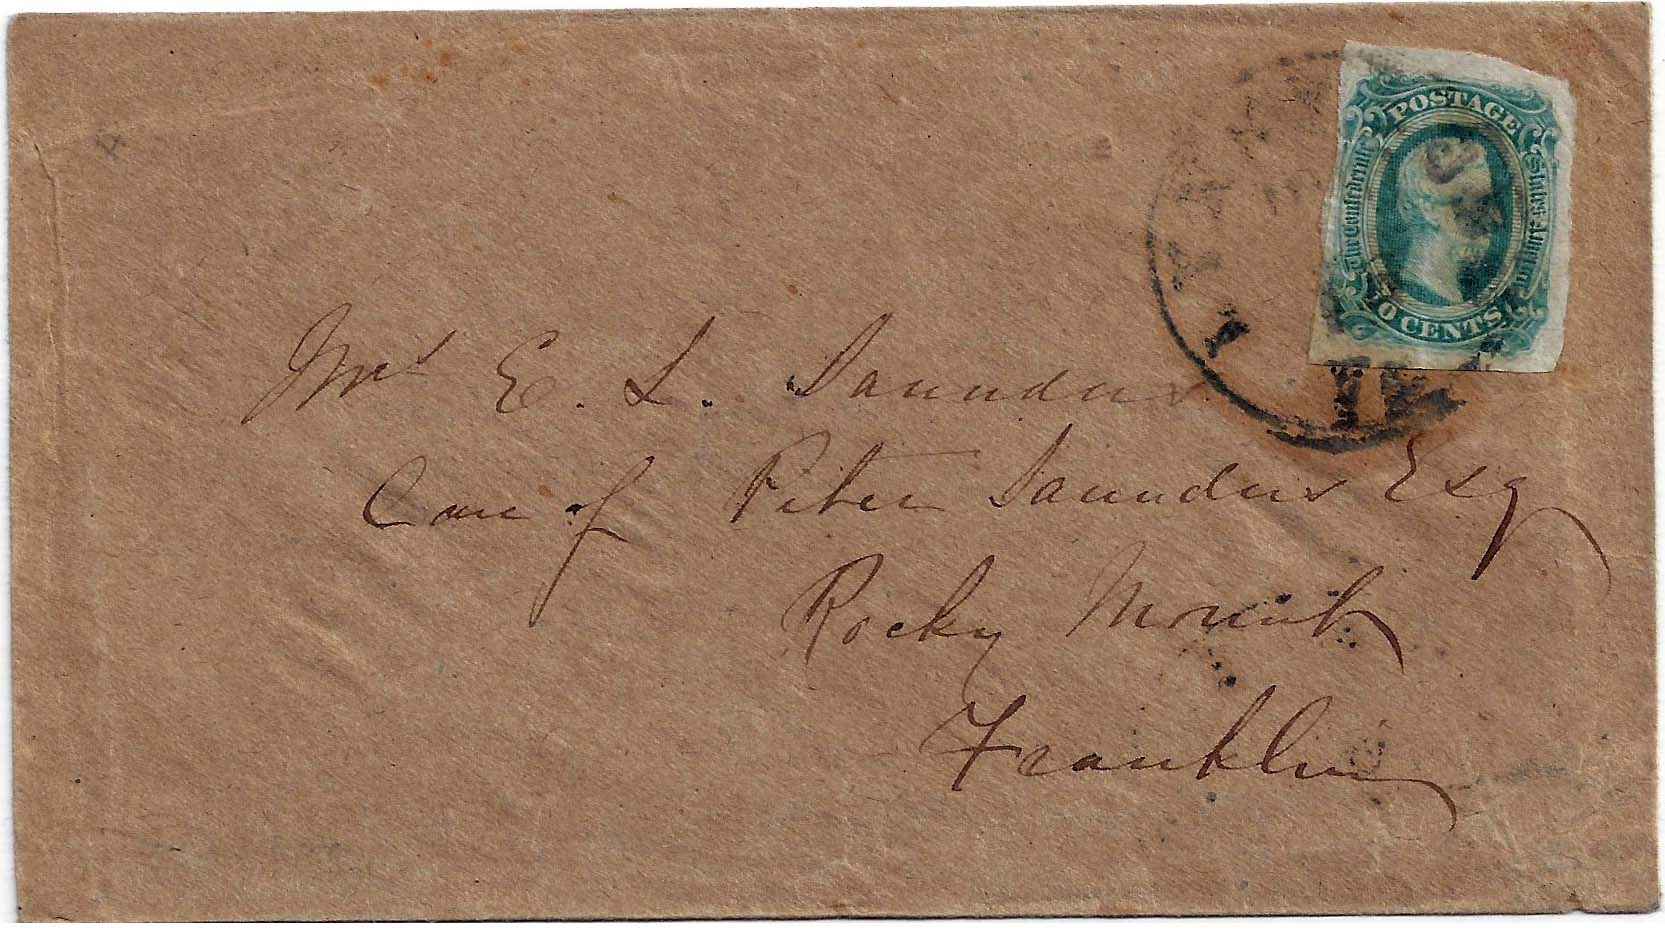 POSTAGE
The Confederate States of America
10 CENTS
Mrs E. L. Saunders
Care of Peter Saunders Esq
Rocky Mount
Franklin